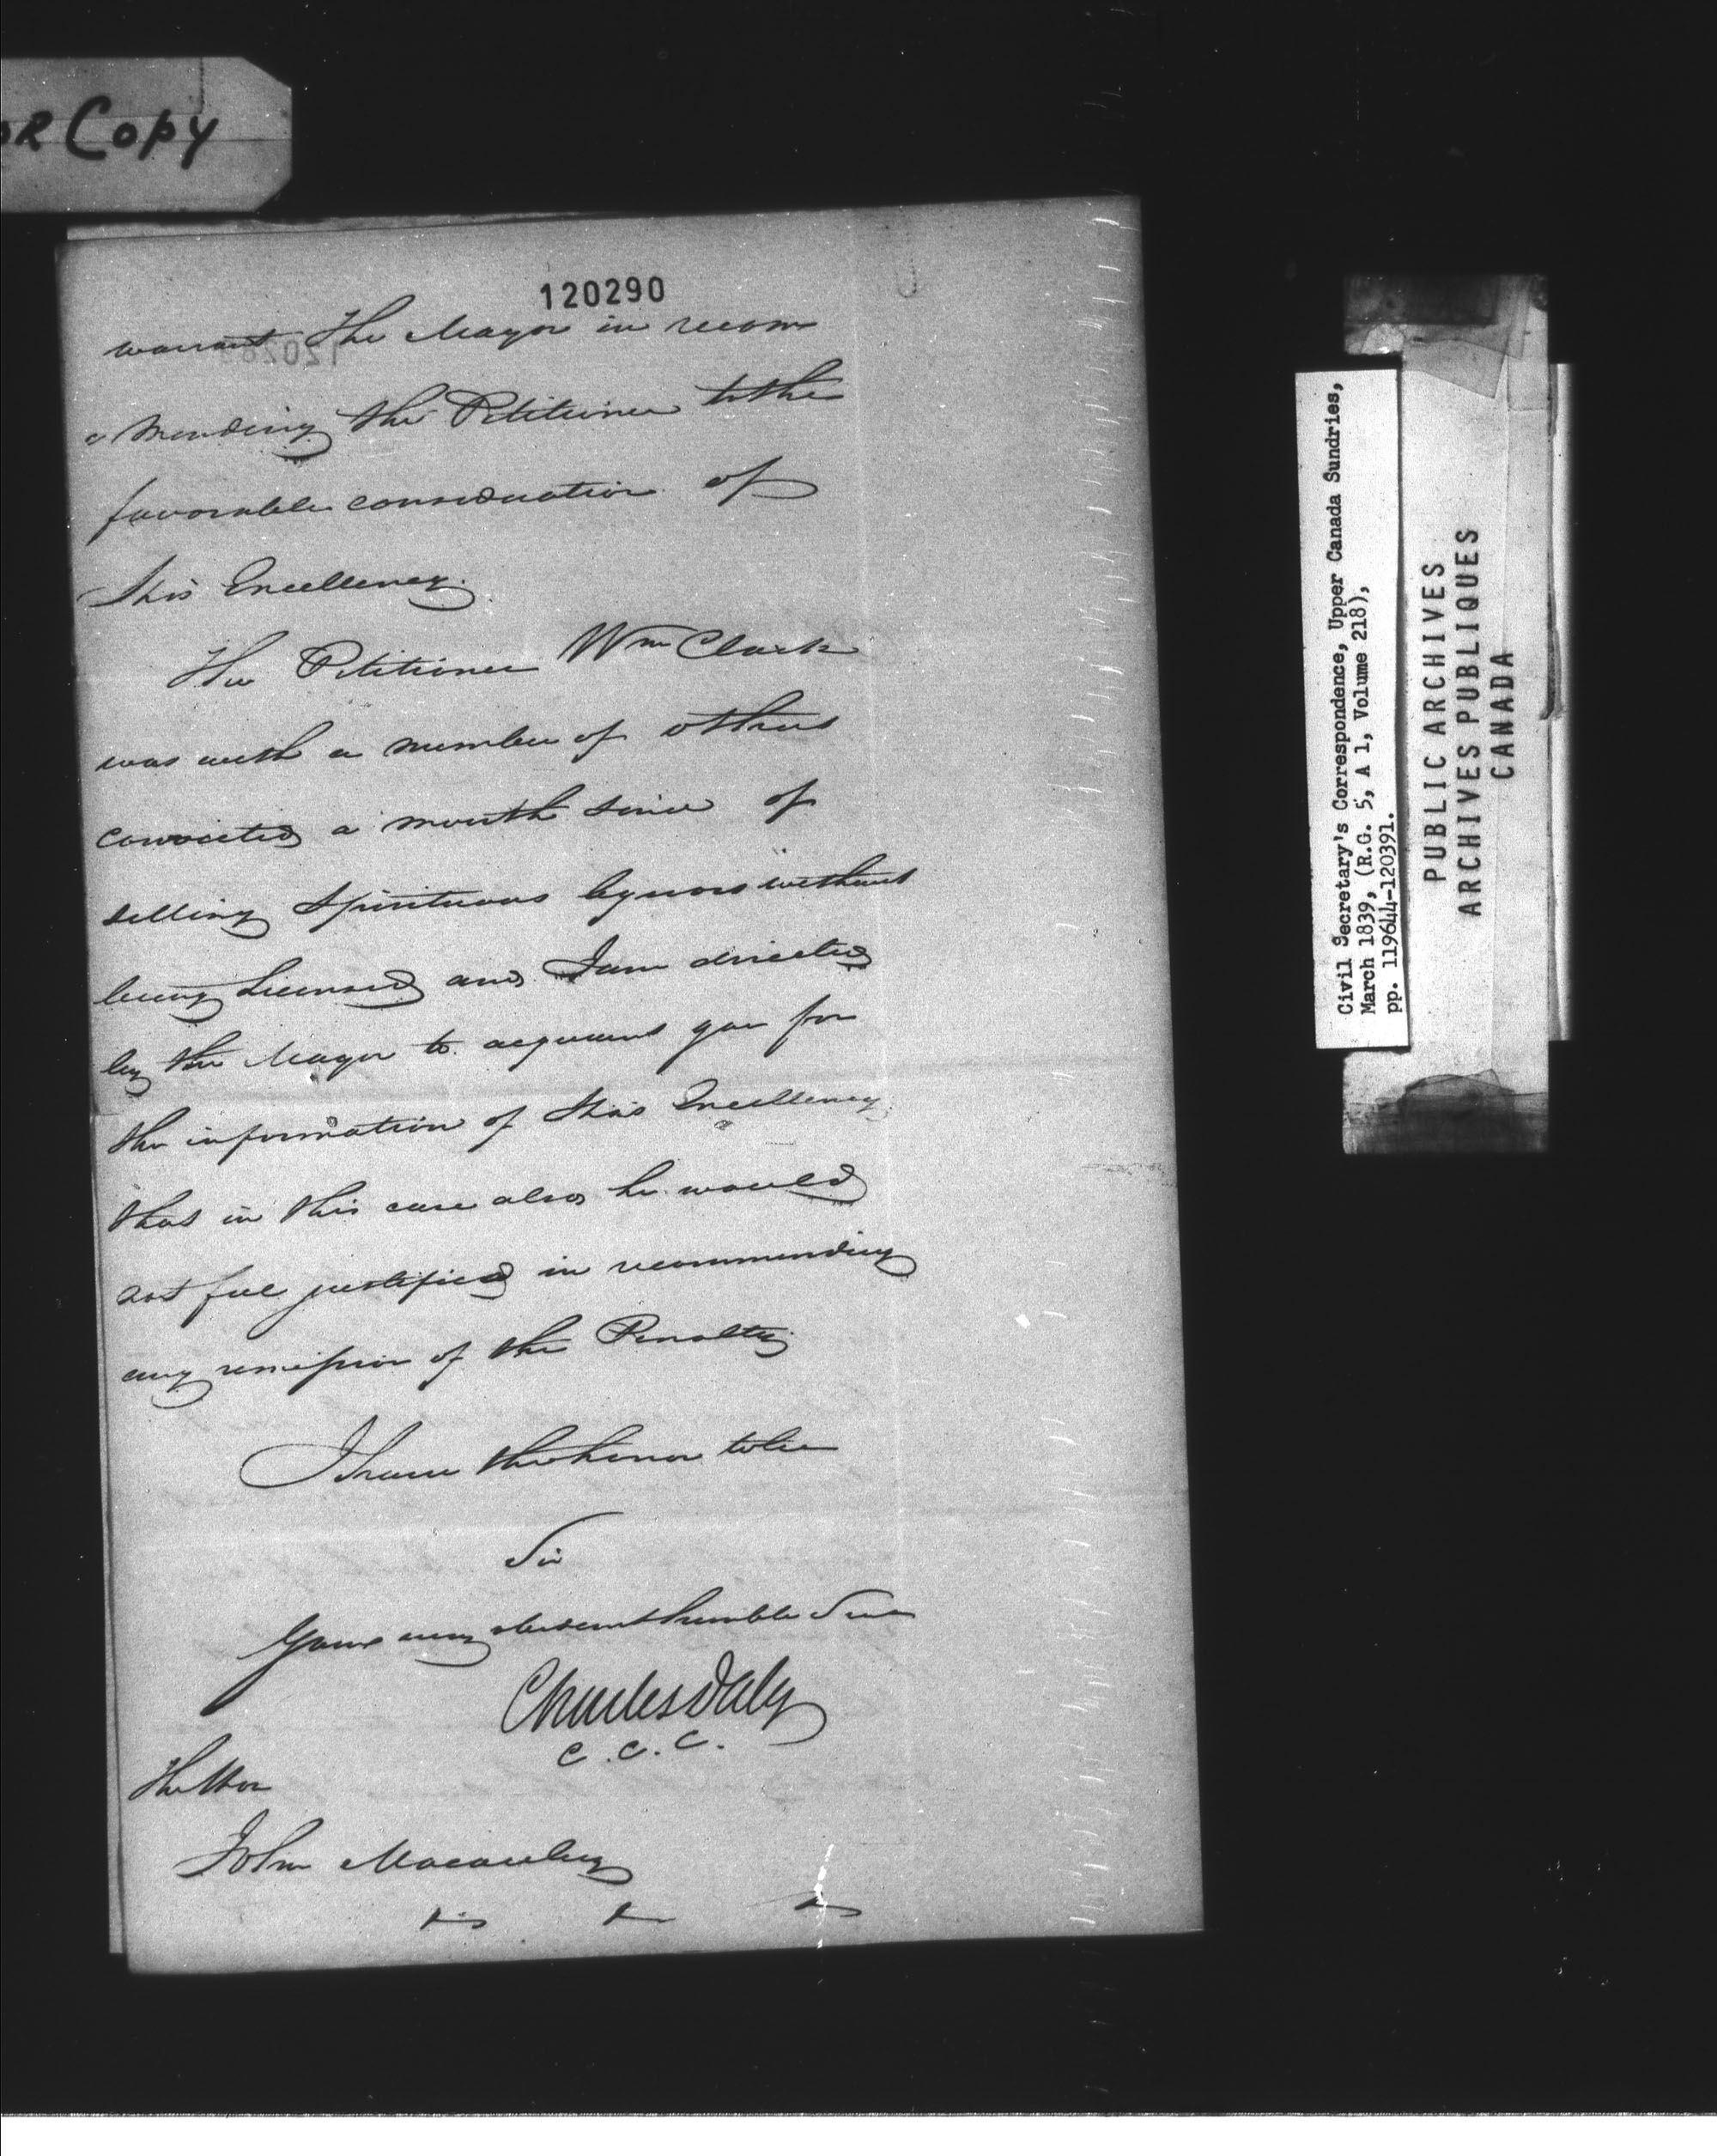 OR Copy
120290
warrant the Mayor in recom
mending the Petitioner to the
favorable consideration of
His Excellency.
The Petitioner Wm Clark
was with a number of others
convicted a month since of
selling Spirituous liquors without
being Licensed and I am directed
by the Mayor to acquaint you for
the information of His Excellency
that in this case also he would
not feel justified in recommending
any remission of the Penalty
I have the honor to be
Sir
Your very obedient humble Serv
Charles Daly
C. C. C.
The Hon
John Macaulay
Civil Secretary's Correspondence, Upper Canada Sundries,
March 1839, (R.G. 5, A 1, Volume 218),
pp. 119644-120391.
PUBLIC ARCHIVES
ARCHIVES PUBLIQUES
CANADA